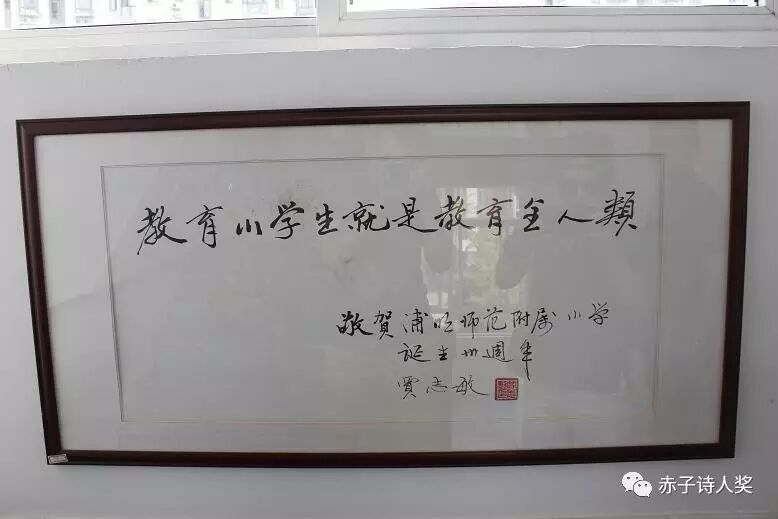 教育小学生就是教育全人類
敬賀浦明师范附属小学
诞生卅週年
賈志敏
赤子诗人奖